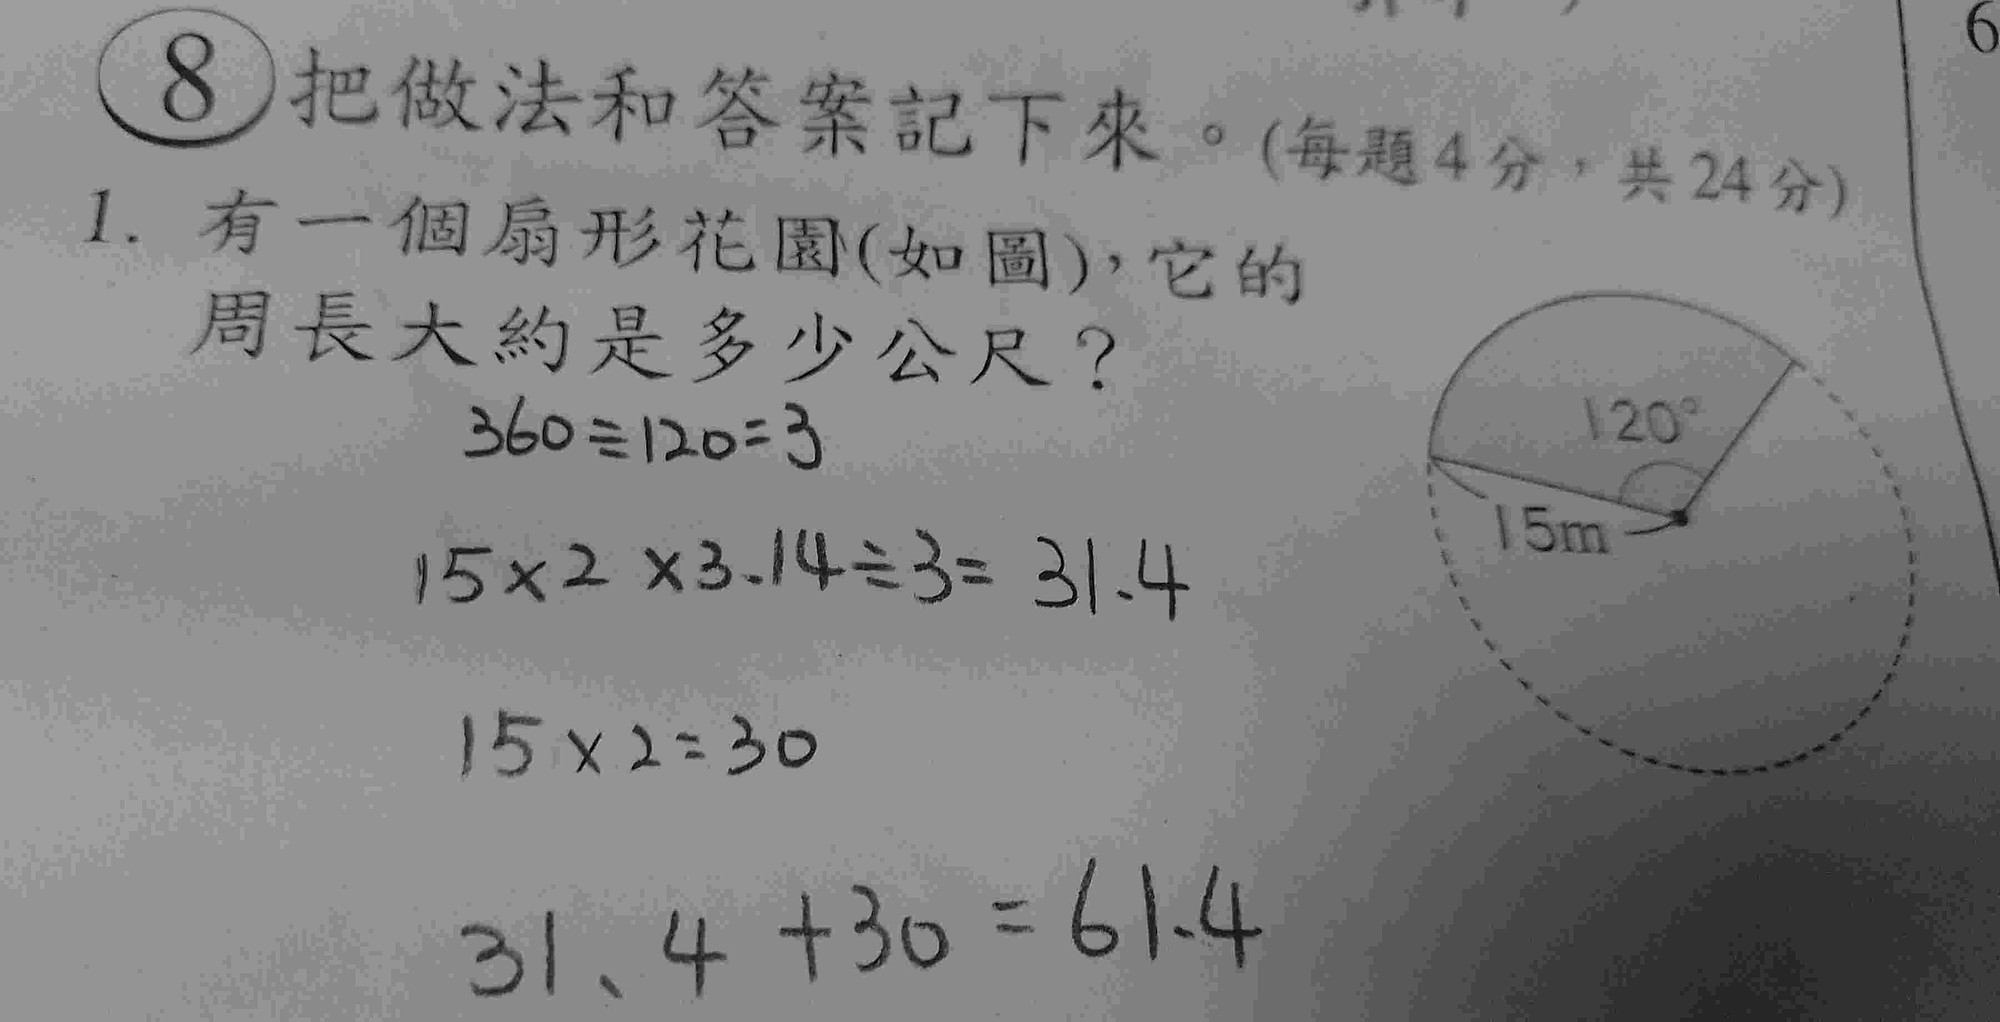 6
8 把做法和答案記下來。(每題4分，共24分)
1. 有一個扇形花園(如圖)，它的
周長大約是多少公尺？
120°
15m
360÷120=3
15×2×3.14÷3=31.4
15×2=30
31.4+30=61.4